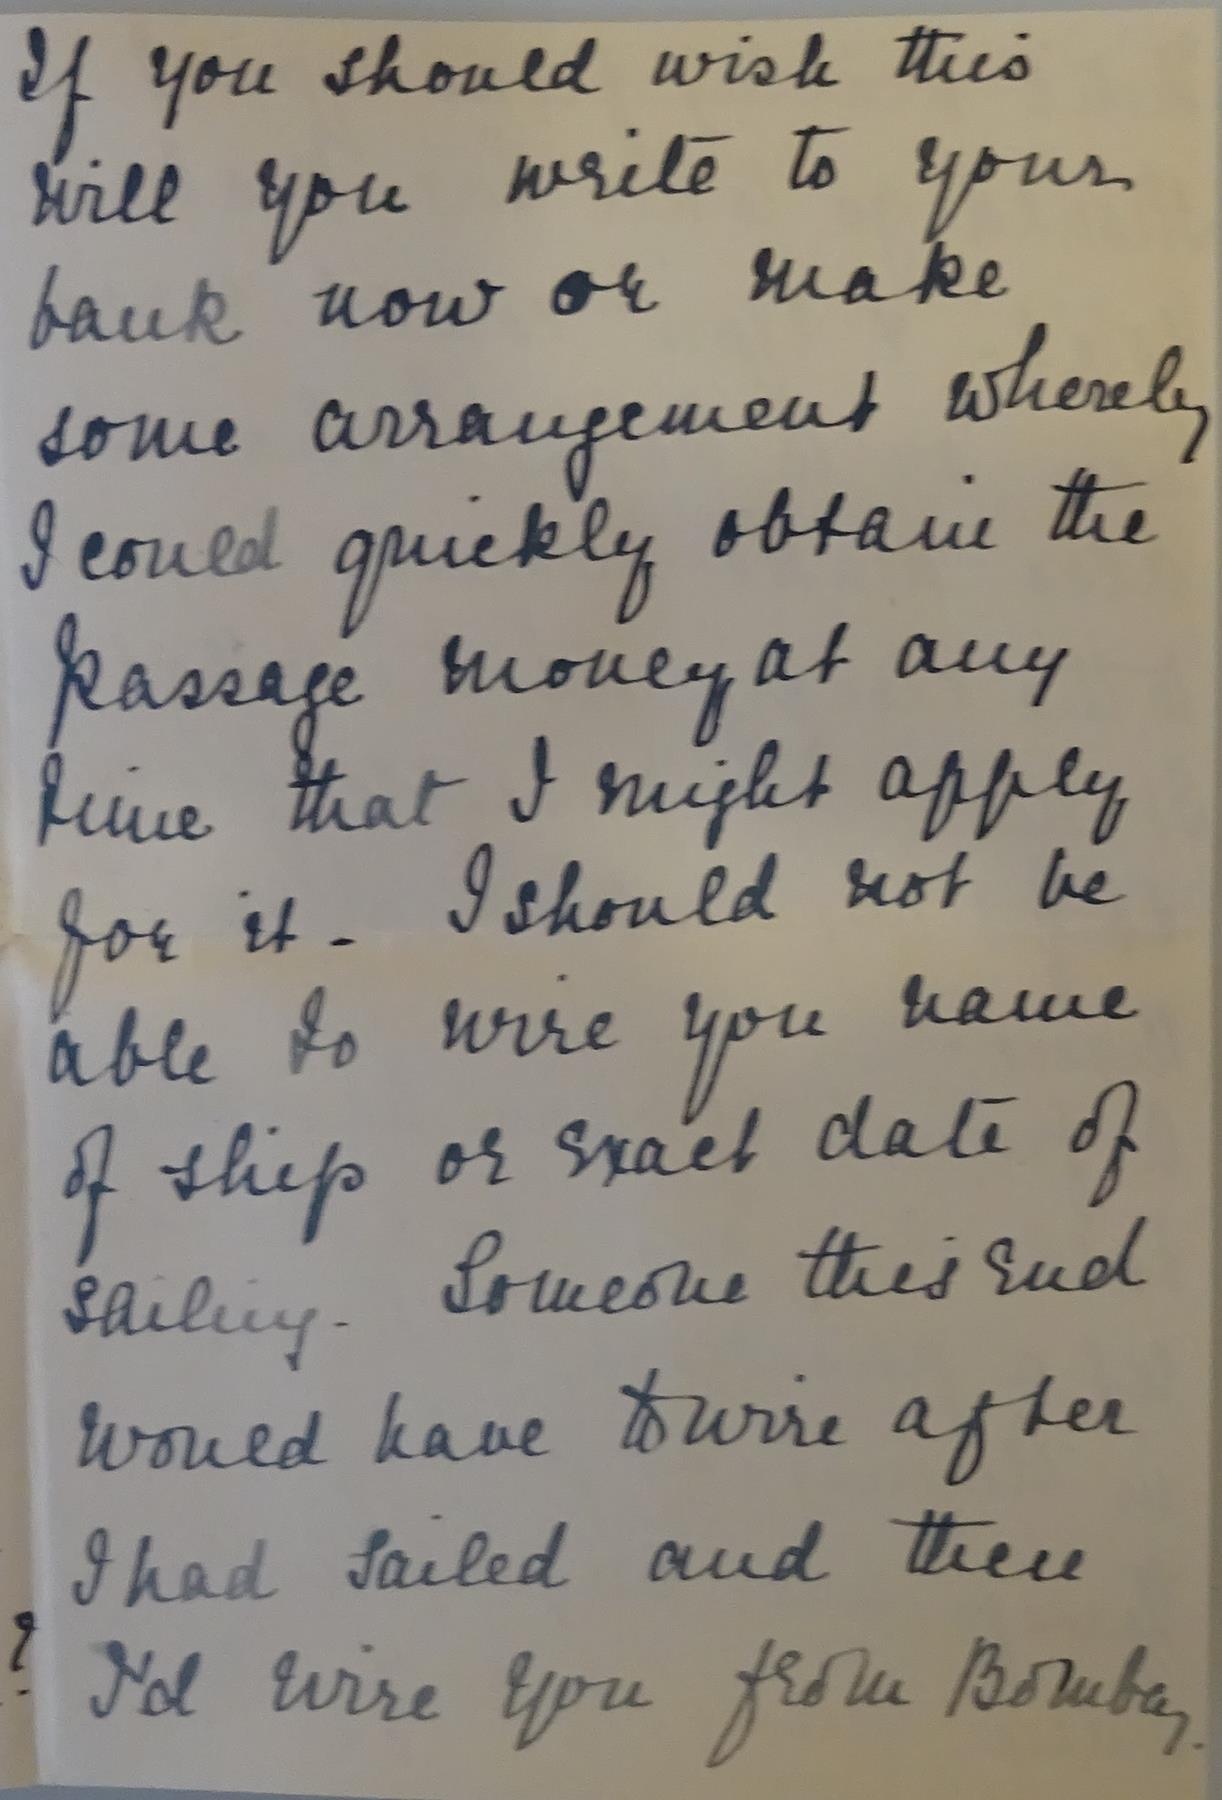 If you should wish this
will you write to your
bank now or make
some arrangement whereby
I could quickly obtain the
passage money at any
time that I might apply
for it - I should not be
able to wire you name
of ship or exact date of
sailing - Someone this end
would have to wire after
I had sailed and then
I'd wire you from Bombay.